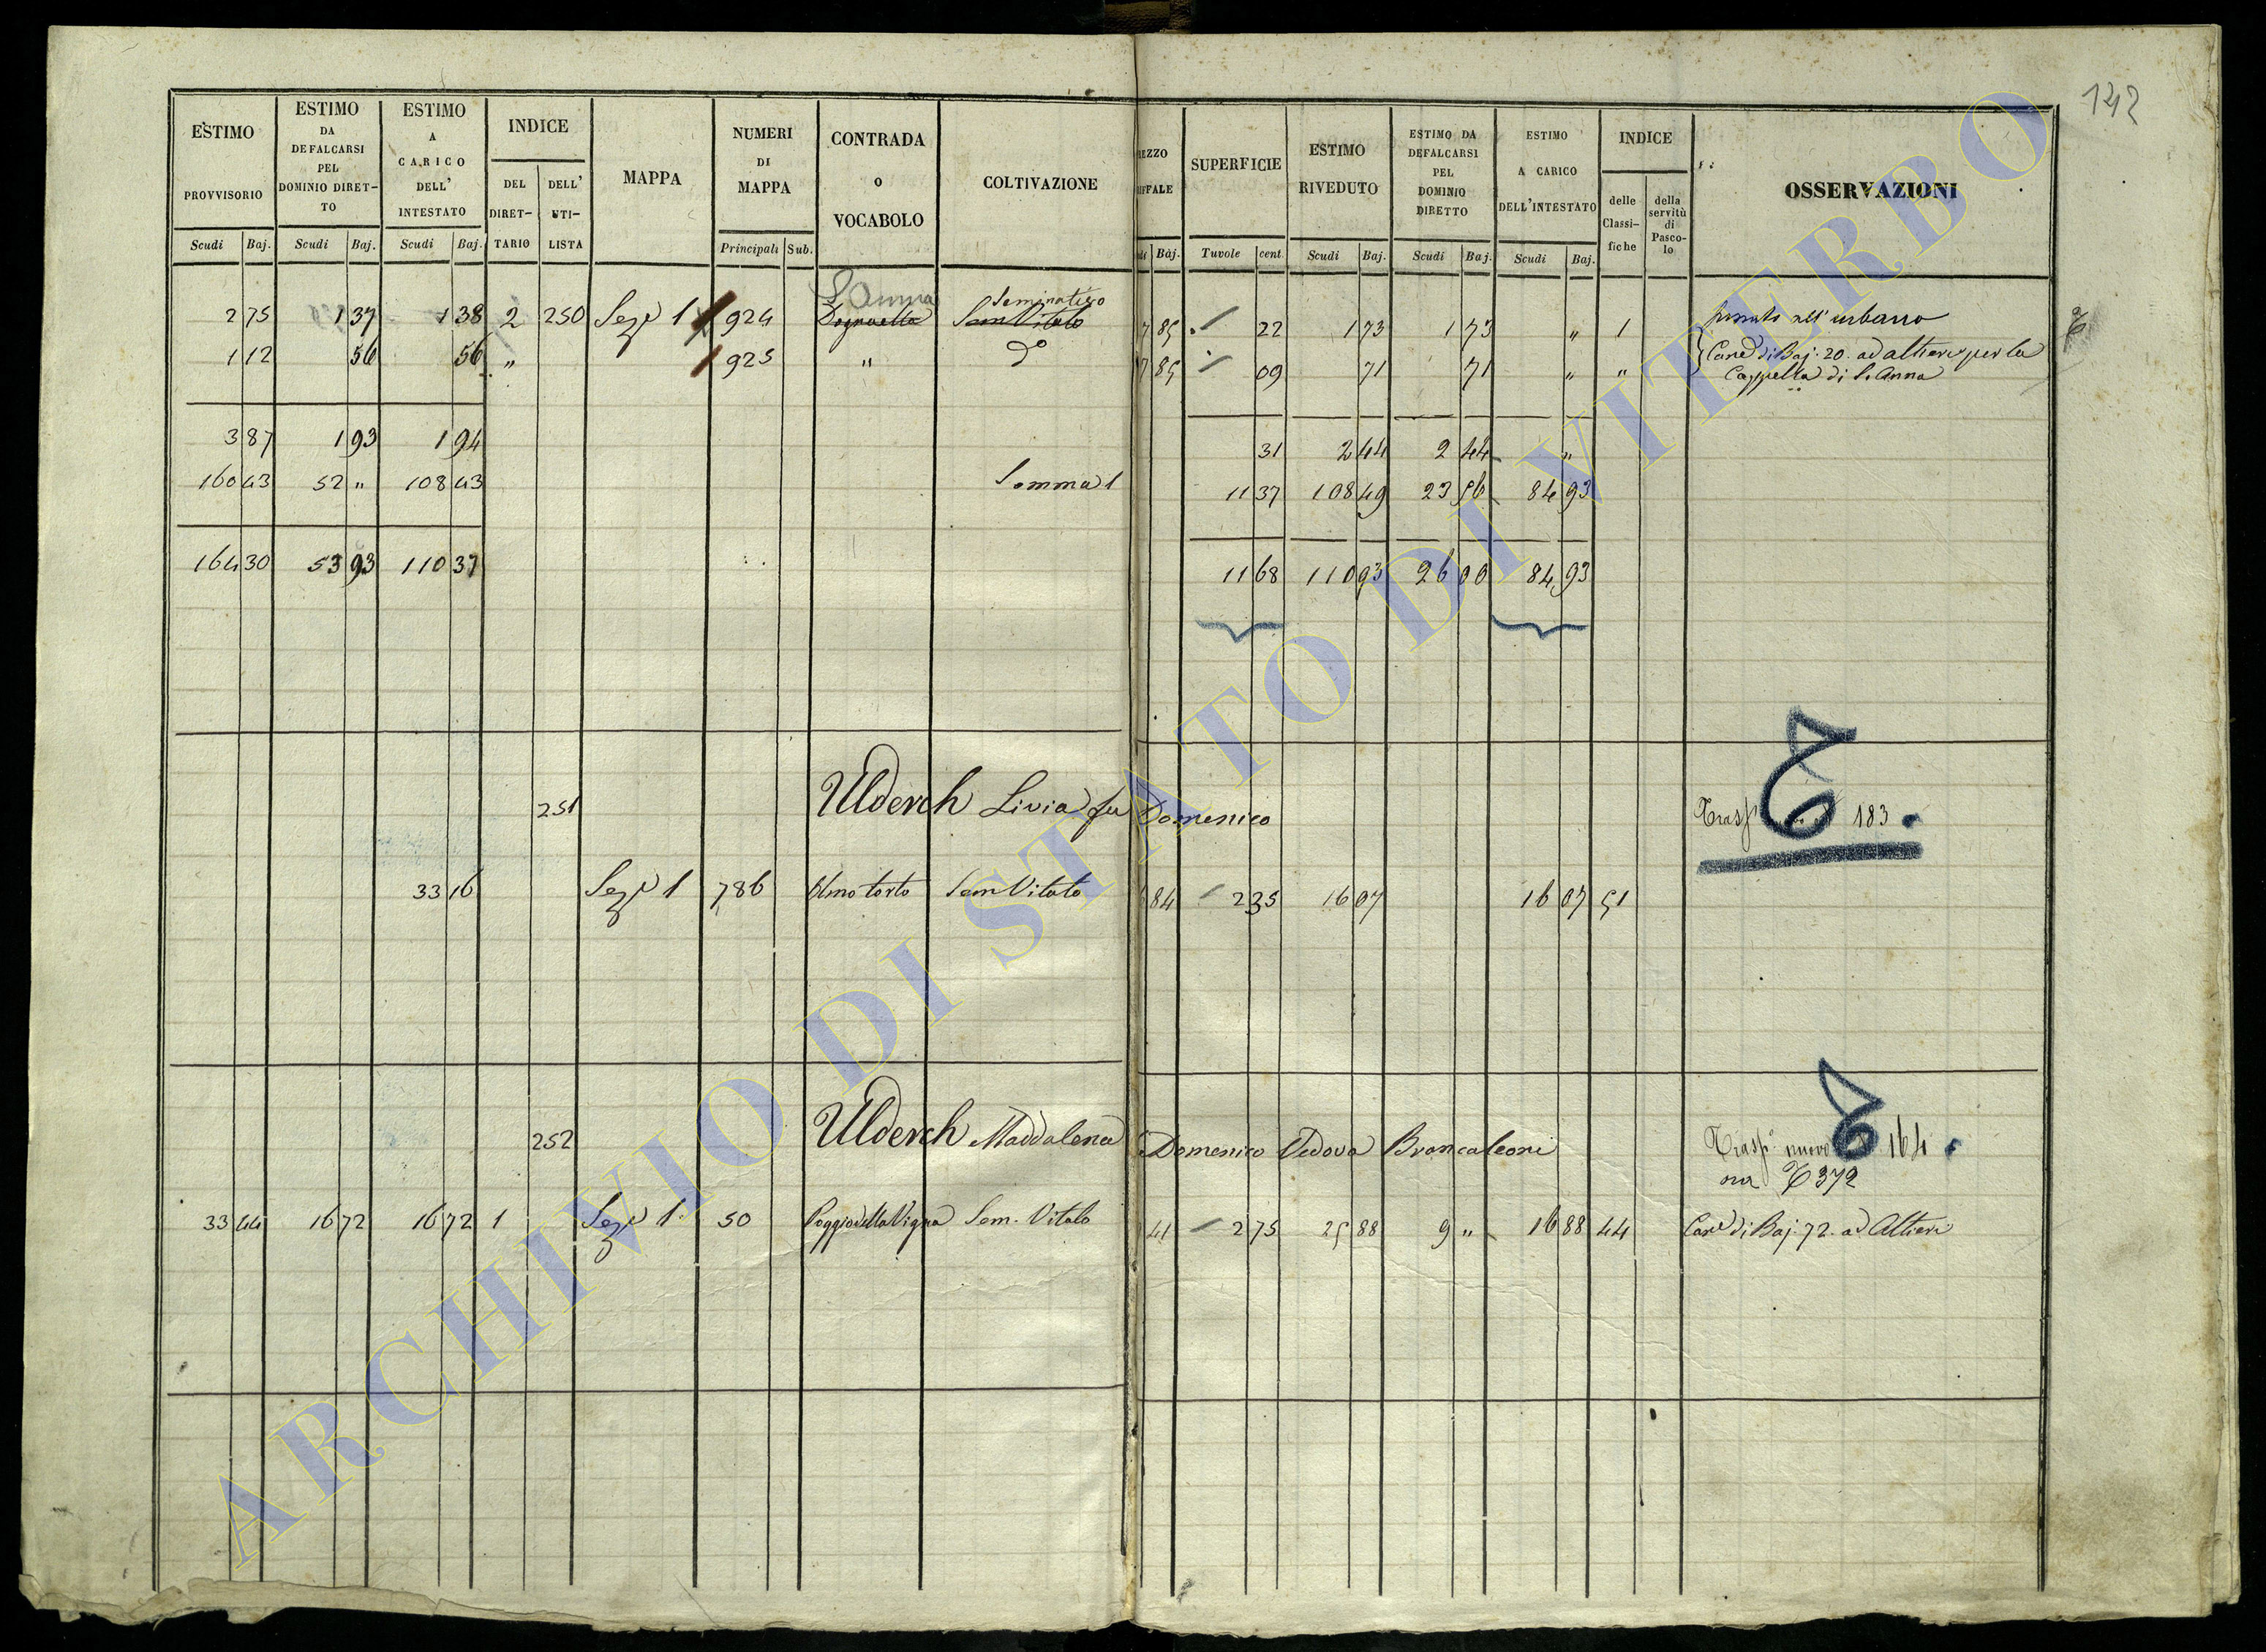 142
ESTIMO PROVVISORIO Scudi Baj.
ESTIMO DA DEFALCARSI PEL DOMINIO DIRETTO Scudi Baj.
ESTIMO A CARICO DELL' INTESTATO Scudi Baj.
INDICE DEL DIRETTARIO DELL' UTILISTA
MAPPA
NUMERI DI MAPPA Principali Sub.
CONTRADA o VOCABOLO
COLTIVAZIONE
EZZO IFFALE di Baj.
SUPERFICIE Tavole cent.
ESTIMO RIVEDUTO Scudi Baj.
ESTIMO DA DEFALCARSI PEL DOMINIO DIRETTO Scudi Baj.
ESTIMO A CARICO DELL'INTESTATO Scudi Baj.
INDICE delle Classifiche della servitù di Pascolo
OSSERVAZIONI
S Anna Seminativo
2 75 1 37 1 38 2 250 Sezne 1 924 Sem Vitato 7 85 22 1 73 1 73 " 1 passato all' urbano
1 12 56 56 " 925 " do 7 85 09 71 71 " " Cane di Baj. 20. ad altieri per la
Cappella di S. Anna
3 87 1 93 1 94 31 2 44 2 44 "
160 43 52 " 108 43 Somma 11 37 108 49 23 56 84 93
164 30 53 93 110 37 11 68 110 93 26 00 84 93
251 Ulderch Livia fu Domenico Trasp 183
33 16 Sezne 1 786 Olmo torto Sem Vitato 84 2 35 16 07 16 07 51
252 Ulderch Maddalena Domenico Vedova Brancaleoni Trasp nuovo 164
ora 372
33 44 16 72 16 72 1 Sezne 1 50 Poggio della Vigna Sem. Vitato 41 2 75 25 88 9 " 16 88 44 Cane di Baj. 72. ad Altieri
ARCHIVIO DI STATO DI VITERBO